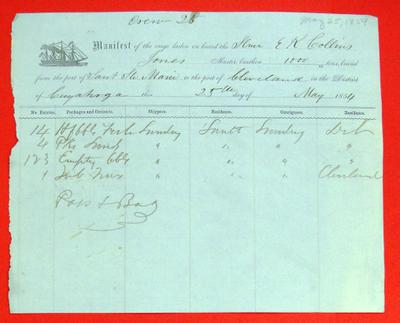 Crew 28
May 25, 1854
Manifest of the cargo laden on board the Stmr E K Collins
Jones Master, burthen 1000 tons, bound
from the port of Saut Ste Marie to the port of Cleveland in the District
of Cuyahoga this 25th day of May 1854
No. Entries. Packages and Contents. Shippers. Residence. Consignees. Residence.
14 Hf bbls Fish Sundry Sault Sundry Det
4 Pkg " " " "
123 Empty bbls " " " "
1 " " " Cleveland
Pass & Bag